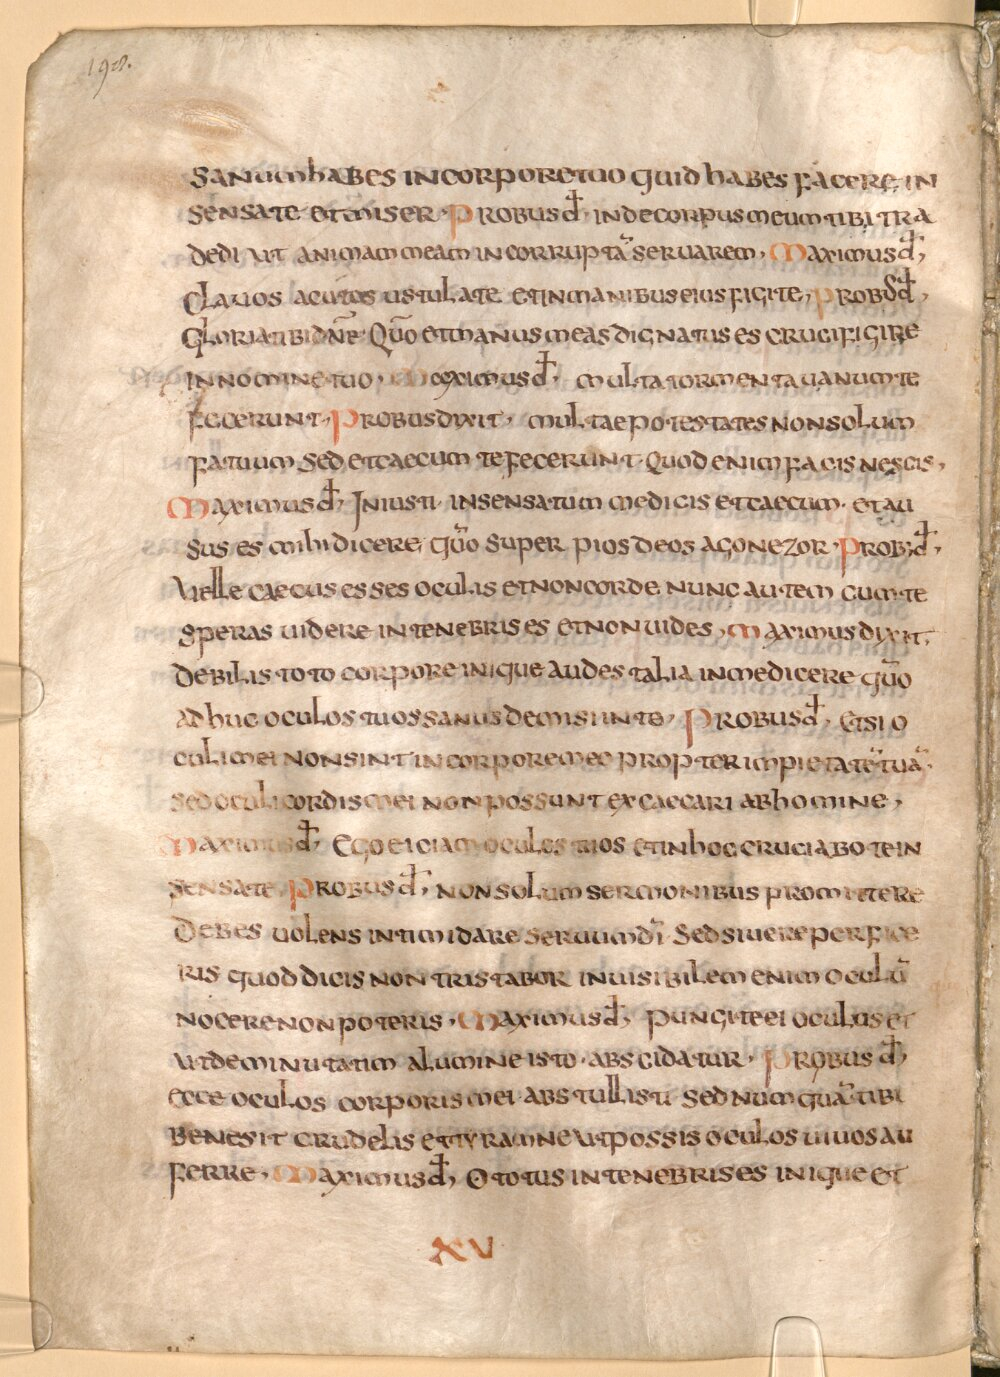 198.
sanum habes in corpore tuo quid habes facere in
sensate et miser. Probus đ, inde corpus meum tibi tra
dedi ut animam meam incorruptā servarem, Maximus đ,
Clavos acutos ustulate et in manibus eius figite, Probus đ,
Gloria tibi dn̄e. Qūo et manus meas dignatus es crucifigire
in nomine tuo, Maximus đ, multa tormenta vanum te
fecerunt, Probus dixit, multae potestates non solum
fatuum sed et caecum te fecerunt. quod enim facis nescis,
Maximus đ, Iniusti insensatum me dicis et caecum. et au
sus es mihi dicere, qūo super pios deos agonezor. Prob; đ,
Velle caecus esses oculis et non corde, nunc autem cum te
speras videre in tenebris es et non vides, Maximus dixit,
Debilis toto corpore inique audes talia in me dicere qūo
adhuc oculos tuos sanus demisi in te, Probus đ, Etsi o
culi mei non sint in corpore meo propter impietatē tuā.
sed oculi cordis mei non possunt excaecari ab homine,
Maximus đ, Ego eiciam oculos tuos et in hoc cruciabo te in
sensate, Probus đ, non solum sermonibus promittere
Debes volens intimidare servum dī. Sed si vere perfice
ris quod dicis non tristabor invisibilem enim oculū
nocere non poteris, Maximus đ, Pungite ei oculos et
ut deminutatim a lumine isto abscidatur, Probus đ,
ecce oculos corporis mei abstullisti sed numquā tibi
Bene sit crudelis et tyramne ut possis oculos vivos au
ferre, Maximus đ, O totus in tenebris es inique et
XV